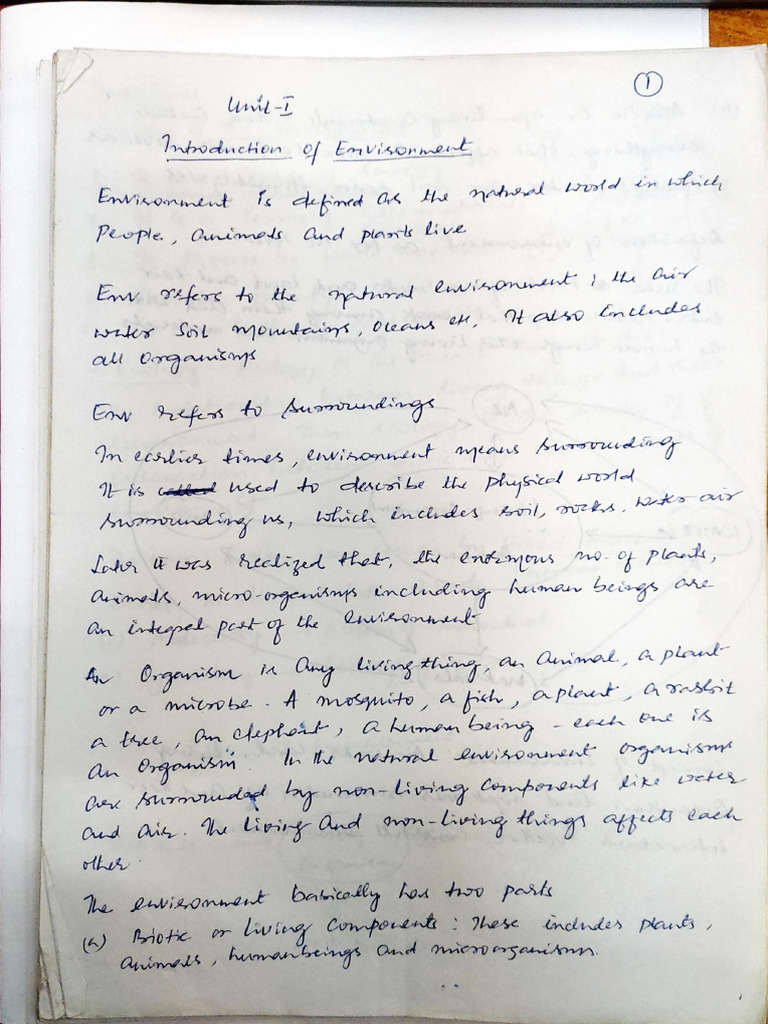 1
Unit-I
Introduction of Environment
Environment is defined as the natural world in which
People, animals and plants live
Env refers to the natural environment; the air
water soil mountains, oceans etc. It also includes
all organisms
Env refers to surroundings
In earlier times, environment means surrounding
It is called used to describe the physical world
surrounding us, which includes soil, rocks, water air
Later it was realized that, the enormous no. of plants,
animals, micro-organisms including human beings are
an integral part of the environment
An Organism is any living thing, an animal, a plant
or a microbe. A mosquito, a fish, a plant, a rabbit
a tree, an elephant, a human being - each one is
an Organism. In the natural environment organisms
are surrounded by non-living components like water
and air. The living and non-living things affects each
other.
The environment basically has two parts
(a) Biotic or Living Components: These includes plants,
animals, human beings and microorganisms.